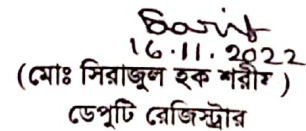 16.11.2022
(মোঃ সিরাজুল হক শরীফ)
ডেপুটি রেজিস্ট্রার